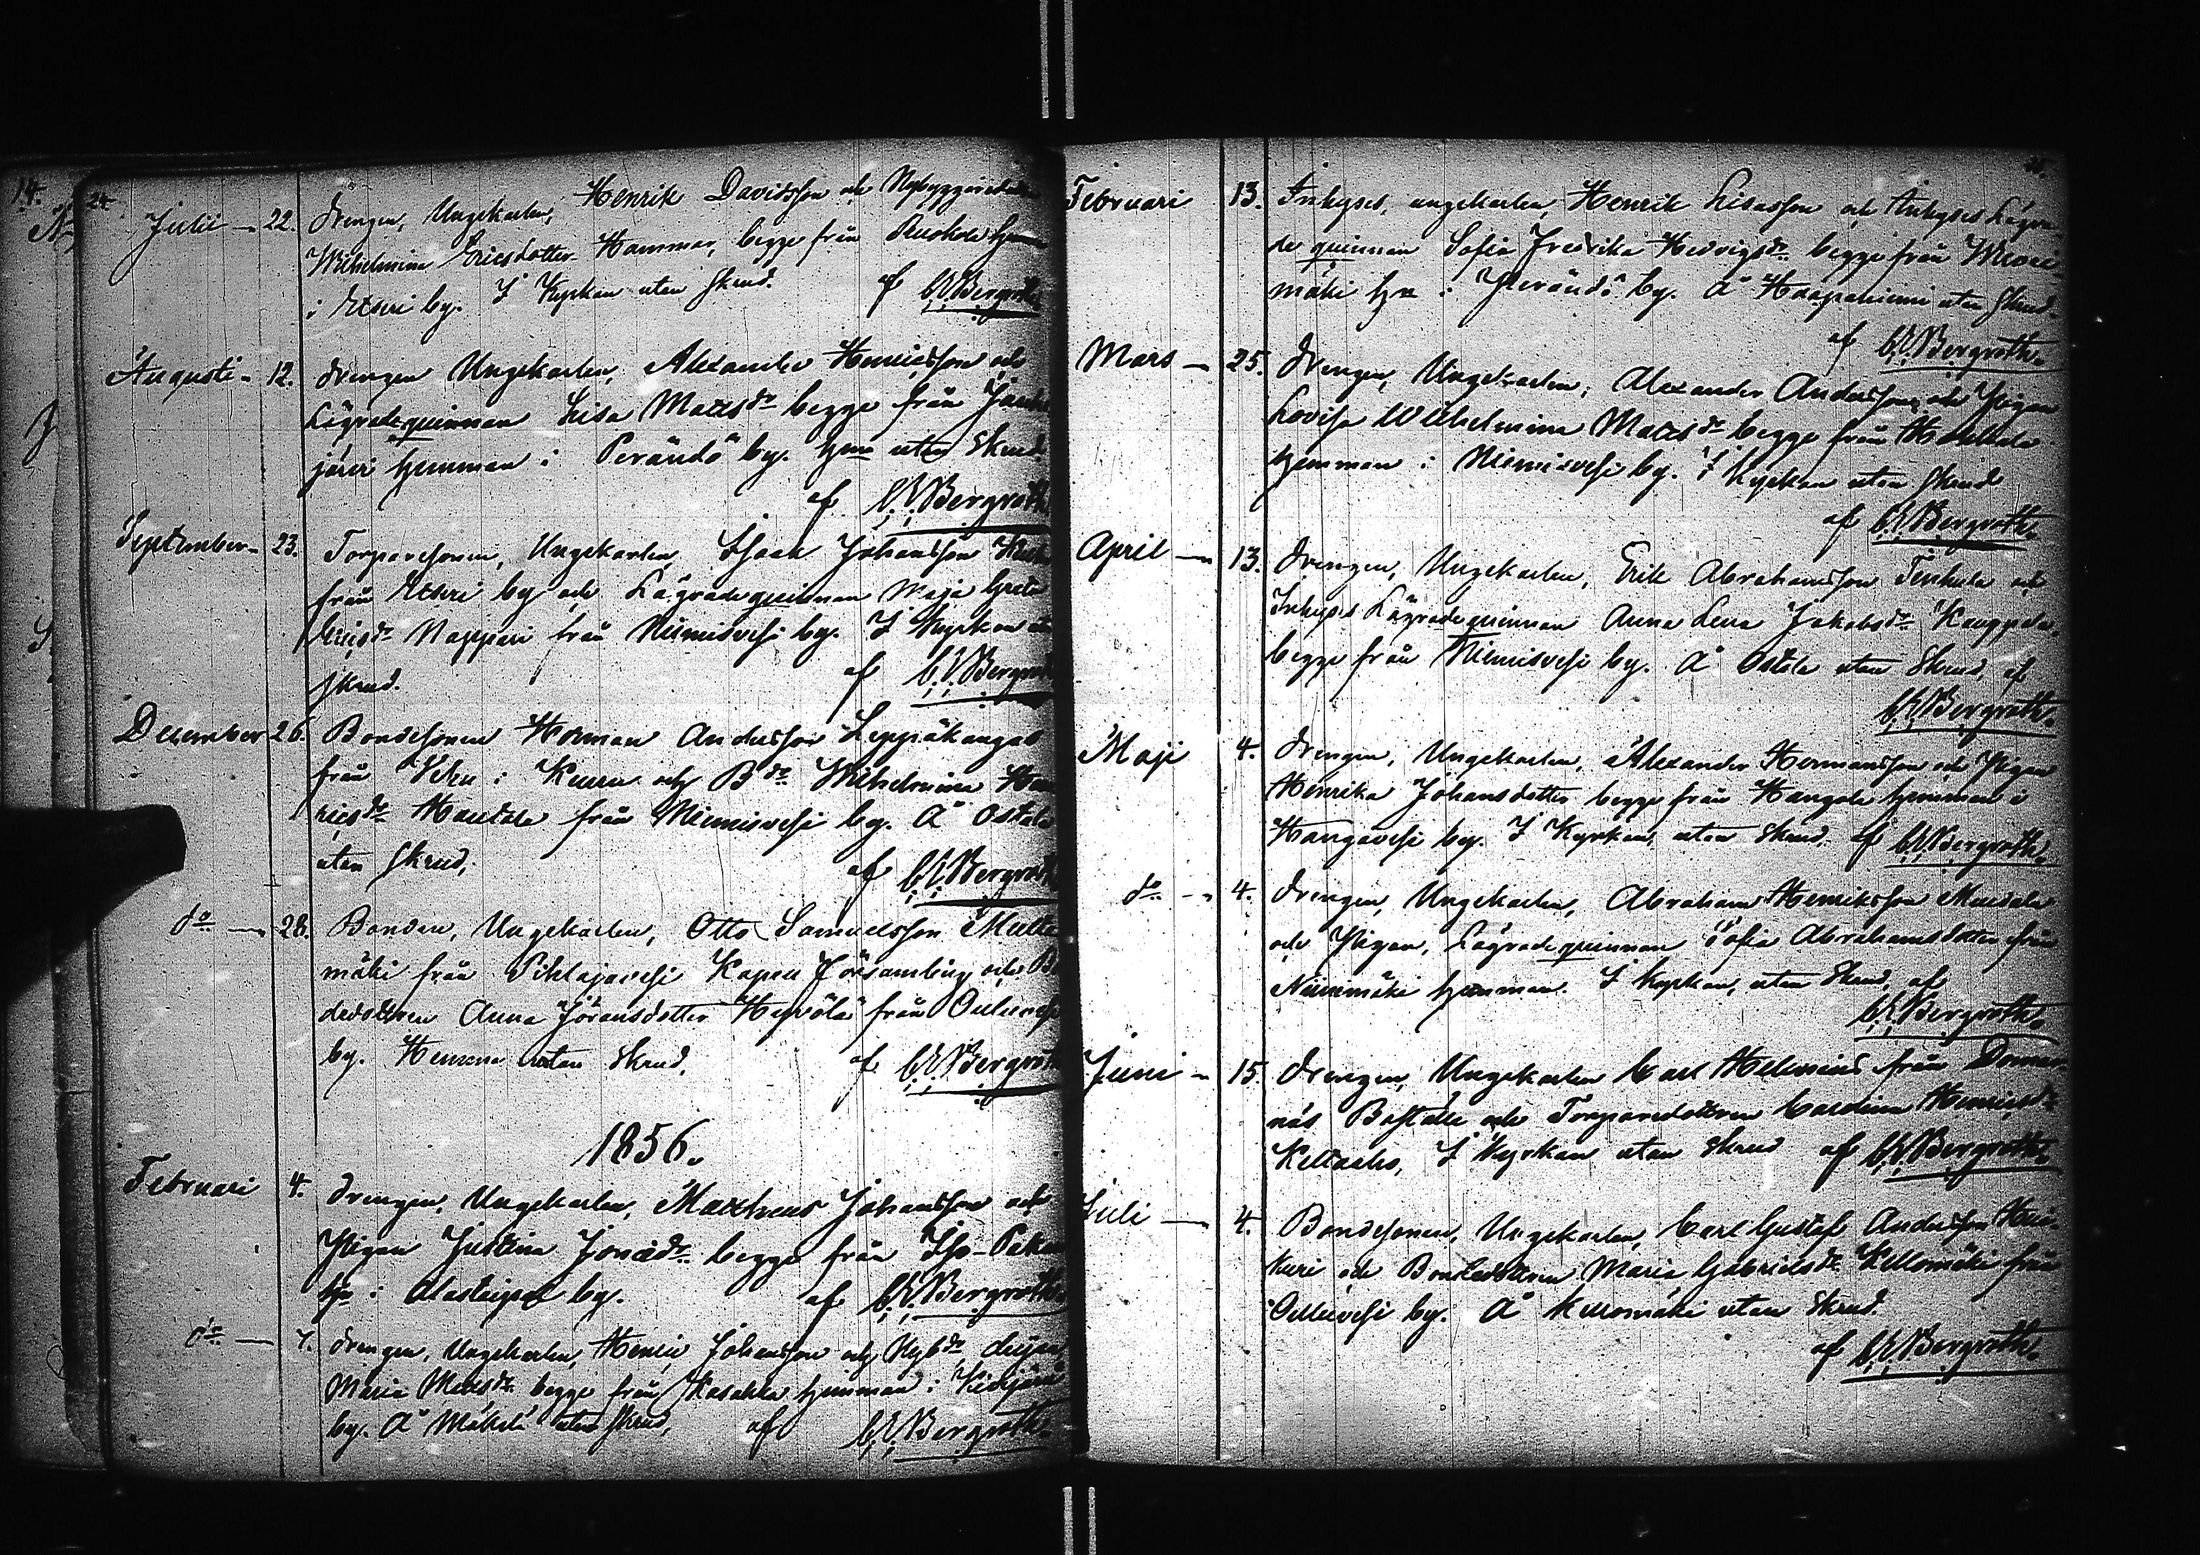 24.
Julii — 22. Drengen, Ungekarlen, Henrik Davidsson och
Wilhelmina Ericsdotter Hammar, begge från
i Etseri by. I Kyrkan utan skrud. af C.E. Bergroth.
Augusti - 12. Drengen Ungekarlen, Alexander Henricsson och
Lägradequinnan Lisa Mattsdr begge från
järvi hemman i Perändö by. Hema utan Skrud
af C.E. Bergroth
September - 23. Torparesonen, Ungekarlen, Isaak Johansson
från Etseri by och Lägradequinnan Maja Greta
Ericsdr Nappari från Niemisvesi by. I Kyrkan utan
skrud. af C.E. Bergroth
December 26. Bondesonen Herman Andersson Leppäkangas
från och Bdr Wilhelmina Hen
ricsdr Hautala från Niemisvesi by. Å Ostola
utan skrud, af C.E. Bergroth
do — 28. Bonden, Ungekarlen, Otto Samuelsson
mäki från Pihlajavesi Kapell församling och Bo
dedottren Anna Jöransdotter från
by. Hemma utan Skrud, af C.E. Bergroth
1856.
Februari 4. Drengen, Ungekarlen, Mattheus Johansson och
Pigan Justina Jonædr begge från
hn i by. af C.E. Bergroth.
do — 4. Drengen, Ungekarlen, Henric Johansson och
Maria Mattsdr begge från hemman i
by. Å Mäkelä utan skrud, af C.E. Bergroth.
Februari 13. Inhyses, ungekarlen, Henrik Lisasson och Inhyses Lägra-
de quinnan Sofia Fredrika Hedvigsdr begge från
mäki hn i Perändö by. Å Haapaniemi utan Skrud.
af C.E. Bergroth.
Mars — 25. Drengen, Ungekarlen, Alexander Andersson och Pigan
Lovisa Wilhelmina Mattsdr begge från Hautala
hemman i Niemisvesi by. I Kyrkan utan skrud
af C.E. Bergroth.
April — 13. Drengen, Ungekarlen, Erik Abrahamsson och
Inhyses Lägradequinnan Anna Lena Jakobsdr
begge från Niemisvesi by. Å Ostola utan Skrud, af
C.E. Bergroth.
Maji 4. Drengen, Ungekarlen, Alexander Hermansson och Pigan
Henrika Johansdotter begge från Hangola hemman i
Hangavesi by. I Kyrkan, utan Skrud. af C.E. Bergroth.
do — 4. Drengen, Ungekarlen, Abraham Henriksson
och Pigan, Lägradequinnan Sofia Abrahamsdotter från
Niinimäki hemman. I Kyrkan, utan Skrud, af
C.E. Bergroth.
Juni — 15. Drengen, Ungekarlen Carl Hellenius från Domar-
näs Boställe och Torparedottren Carolina Henricsdr
I Kyrkan utan Skrud af C.E. Bergroth.
Juli — 4. Bondesonen, Ungekarlen, Carl Gustaf Andersson
och Bondedottren Maria Gabrielsdr Kellomäki från
by. Å Kellomäki utan Skrud.
af C.E. Bergroth.